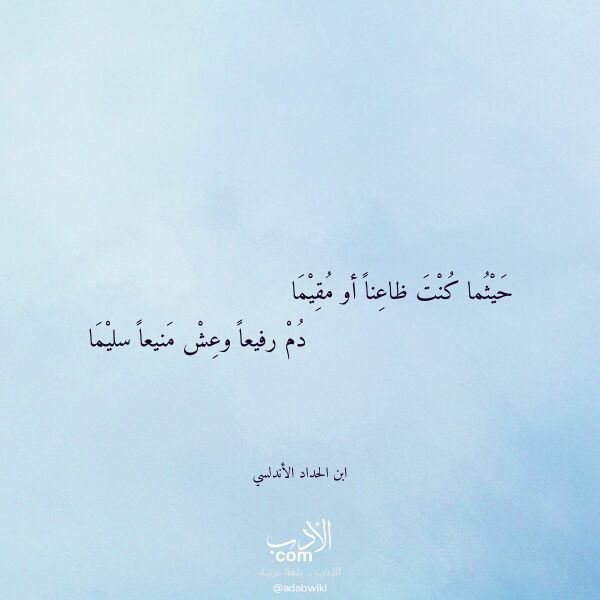 حَيْثُما كُنْتَ ظاعِناً أو مُقِيْمَا
دُمْ رفيعاً وعِشْ مَنيعاً سليْمَا
ابن الحداد الأندلسي
الأدب
com
الأدب .. بلغة عربية
@adabwiki